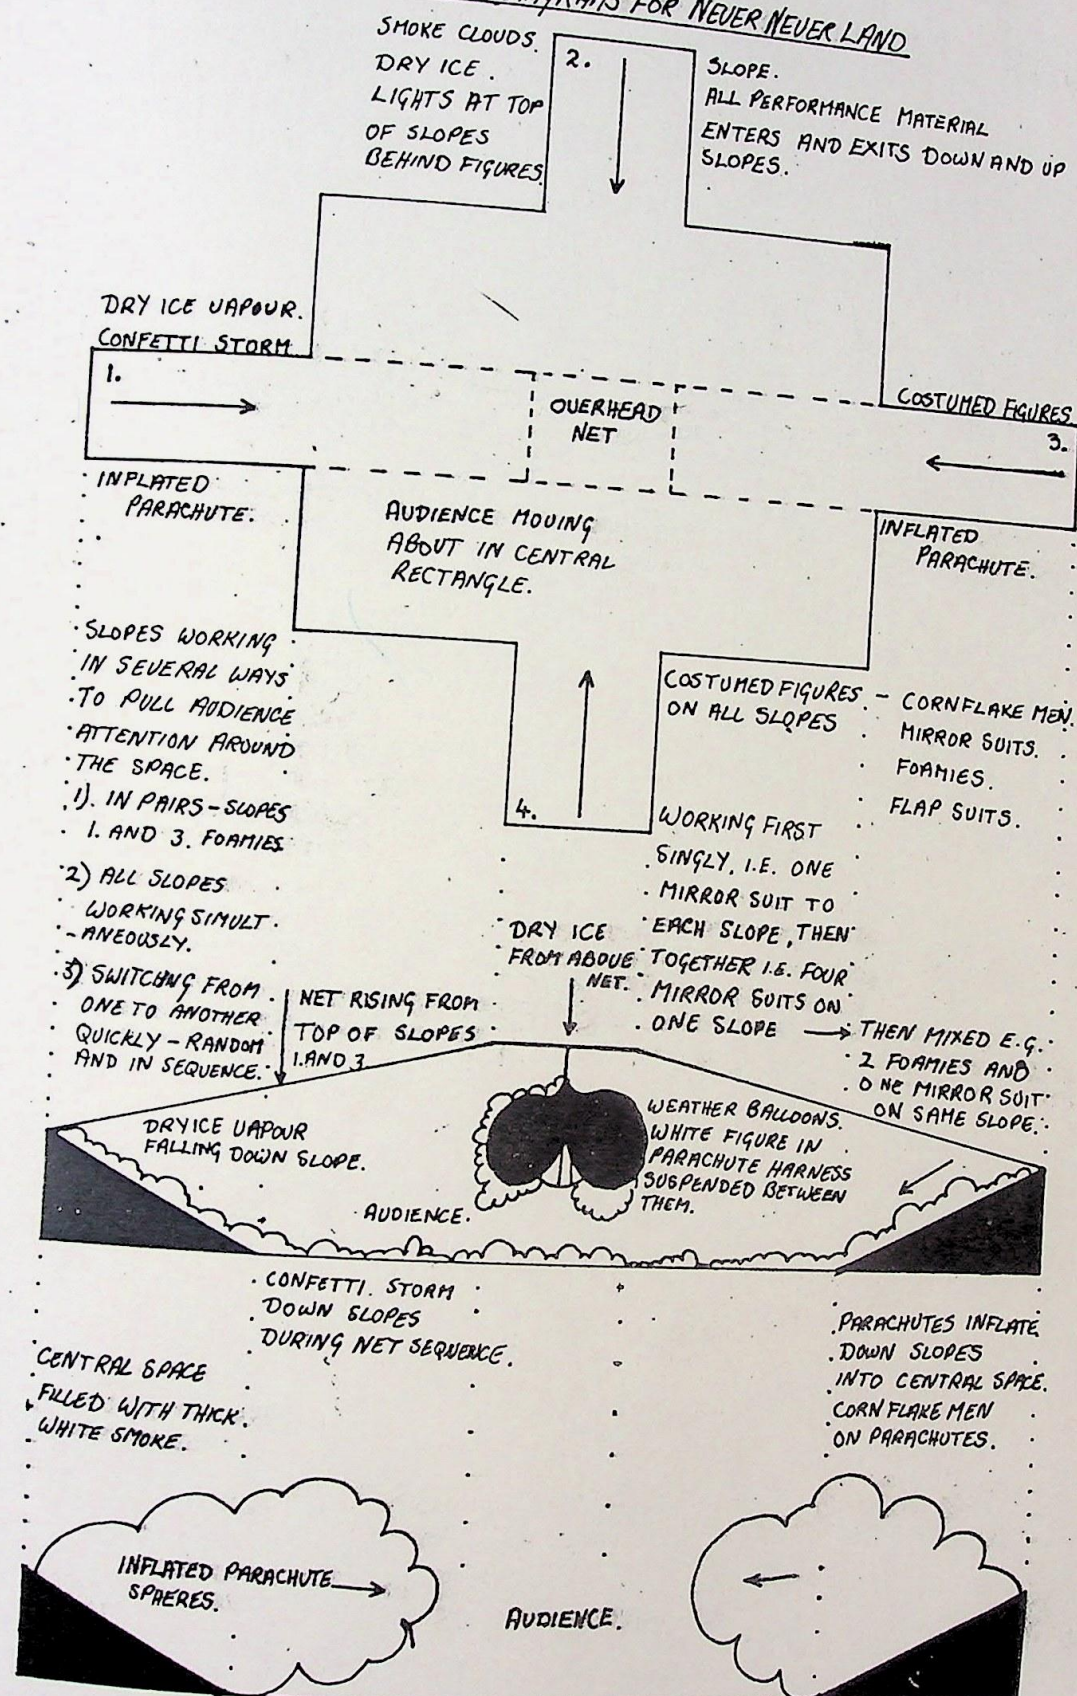 FOR NEVER NEVER LAND
SMOKE CLOUDS.
DRY ICE.
LIGHTS AT TOP
OF SLOPES
BEHIND FIGURES.
2.
SLOPE.
ALL PERFORMANCE MATERIAL
ENTERS AND EXITS DOWN AND UP
SLOPES.
DRY ICE VAPOUR.
CONFETTI STORM
1.
OVERHEAD
NET
COSTUMED FIGURES
3.
INFLATED
PARACHUTE.
AUDIENCE MOVING
ABOUT IN CENTRAL
RECTANGLE.
INFLATED
PARACHUTE.
SLOPES WORKING
IN SEVERAL WAYS
TO PULL AUDIENCE
ATTENTION AROUND
THE SPACE.
1). IN PAIRS - SLOPES
1. AND 3. FOAMIES
2) ALL SLOPES
WORKING SIMULT
-ANEOUSLY.
3) SWITCHNG FROM
ONE TO ANOTHER
QUICKLY - RANDOM
AND IN SEQUENCE.
COSTUMED FIGURES -
ON ALL SLOPES
CORNFLAKE MEN.
MIRROR SUITS.
FOAMIES.
FLAP SUITS.
4.
WORKING FIRST
SINGLY, I.E. ONE
MIRROR SUIT TO
EACH SLOPE, THEN
TOGETHER I.E. FOUR
MIRROR SUITS ON
ONE SLOPE
THEN MIXED E.G.
2 FOAMIES AND
ONE MIRROR SUIT
ON SAME SLOPE.
DRY ICE
FROM ABOVE
NET.
NET RISING FROM
TOP OF SLOPES
1. AND 3.
DRY ICE VAPOUR
FALLING DOWN SLOPE.
AUDIENCE.
WEATHER BALLOONS.
WHITE FIGURE IN
PARACHUTE HARNESS
SUSPENDED BETWEEN
THEM.
CONFETTI. STORM
DOWN SLOPES
DURING NET SEQUENCE.
CENTRAL SPACE
FILLED WITH THICK
WHITE SMOKE.
PARACHUTES INFLATE
DOWN SLOPES
INTO CENTRAL SPACE.
CORNFLAKE MEN
ON PARACHUTES.
INFLATED PARACHUTE
SPHERES.
AUDIENCE.